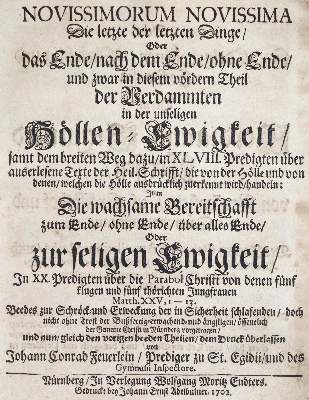 NOVISSIMORUM NOVISSIMA
Die letzte der letzten Dinge/
Oder
das Ende/nach dem Ende/ohne Ende/
und zwar in diesem vördern Theil
der Verdammten
in der unseligen
Höllen-Ewigkeit/
samt dem breiten Weg dazu/in XLVIII. Predigten über
auserlesene Texte der Heil. Schrifft/ die von der Hölle und von
denen/ welchen die Hölle ausdrücklich zuerkennt wird/handeln:
Die wachsame Bereitschafft
zum Ende/ ohne Ende/ über alles Ende/
Oder
zur seligen Ewigkeit/
In XX. Predigten über die Parabol Christi von denen fünf
klugen und fünf thörichten Jungfrauen
Matth. XXV, 1 — 13.
Beedes zur Schröck-und Erweckung der in Sicherheit schlafenden / doch
nicht ohne Trost der Bußfertig-erwachenden und ängstigen/ öffentlich
der Gemeine Christi in Nürnberg vorgetragen/
und nun/ gleich den vorigen beeden Theilen/ dem Druck überlassen
von
Johann Conrad Feuerlein/ Prediger zu St. Egidii/und des
Gymnasii Inspectore.
Nürnberg/ In Verlegung Wolfgang Moritz Endters.
Gedruckt bey Johann Ernst Adelbulner. 1702.